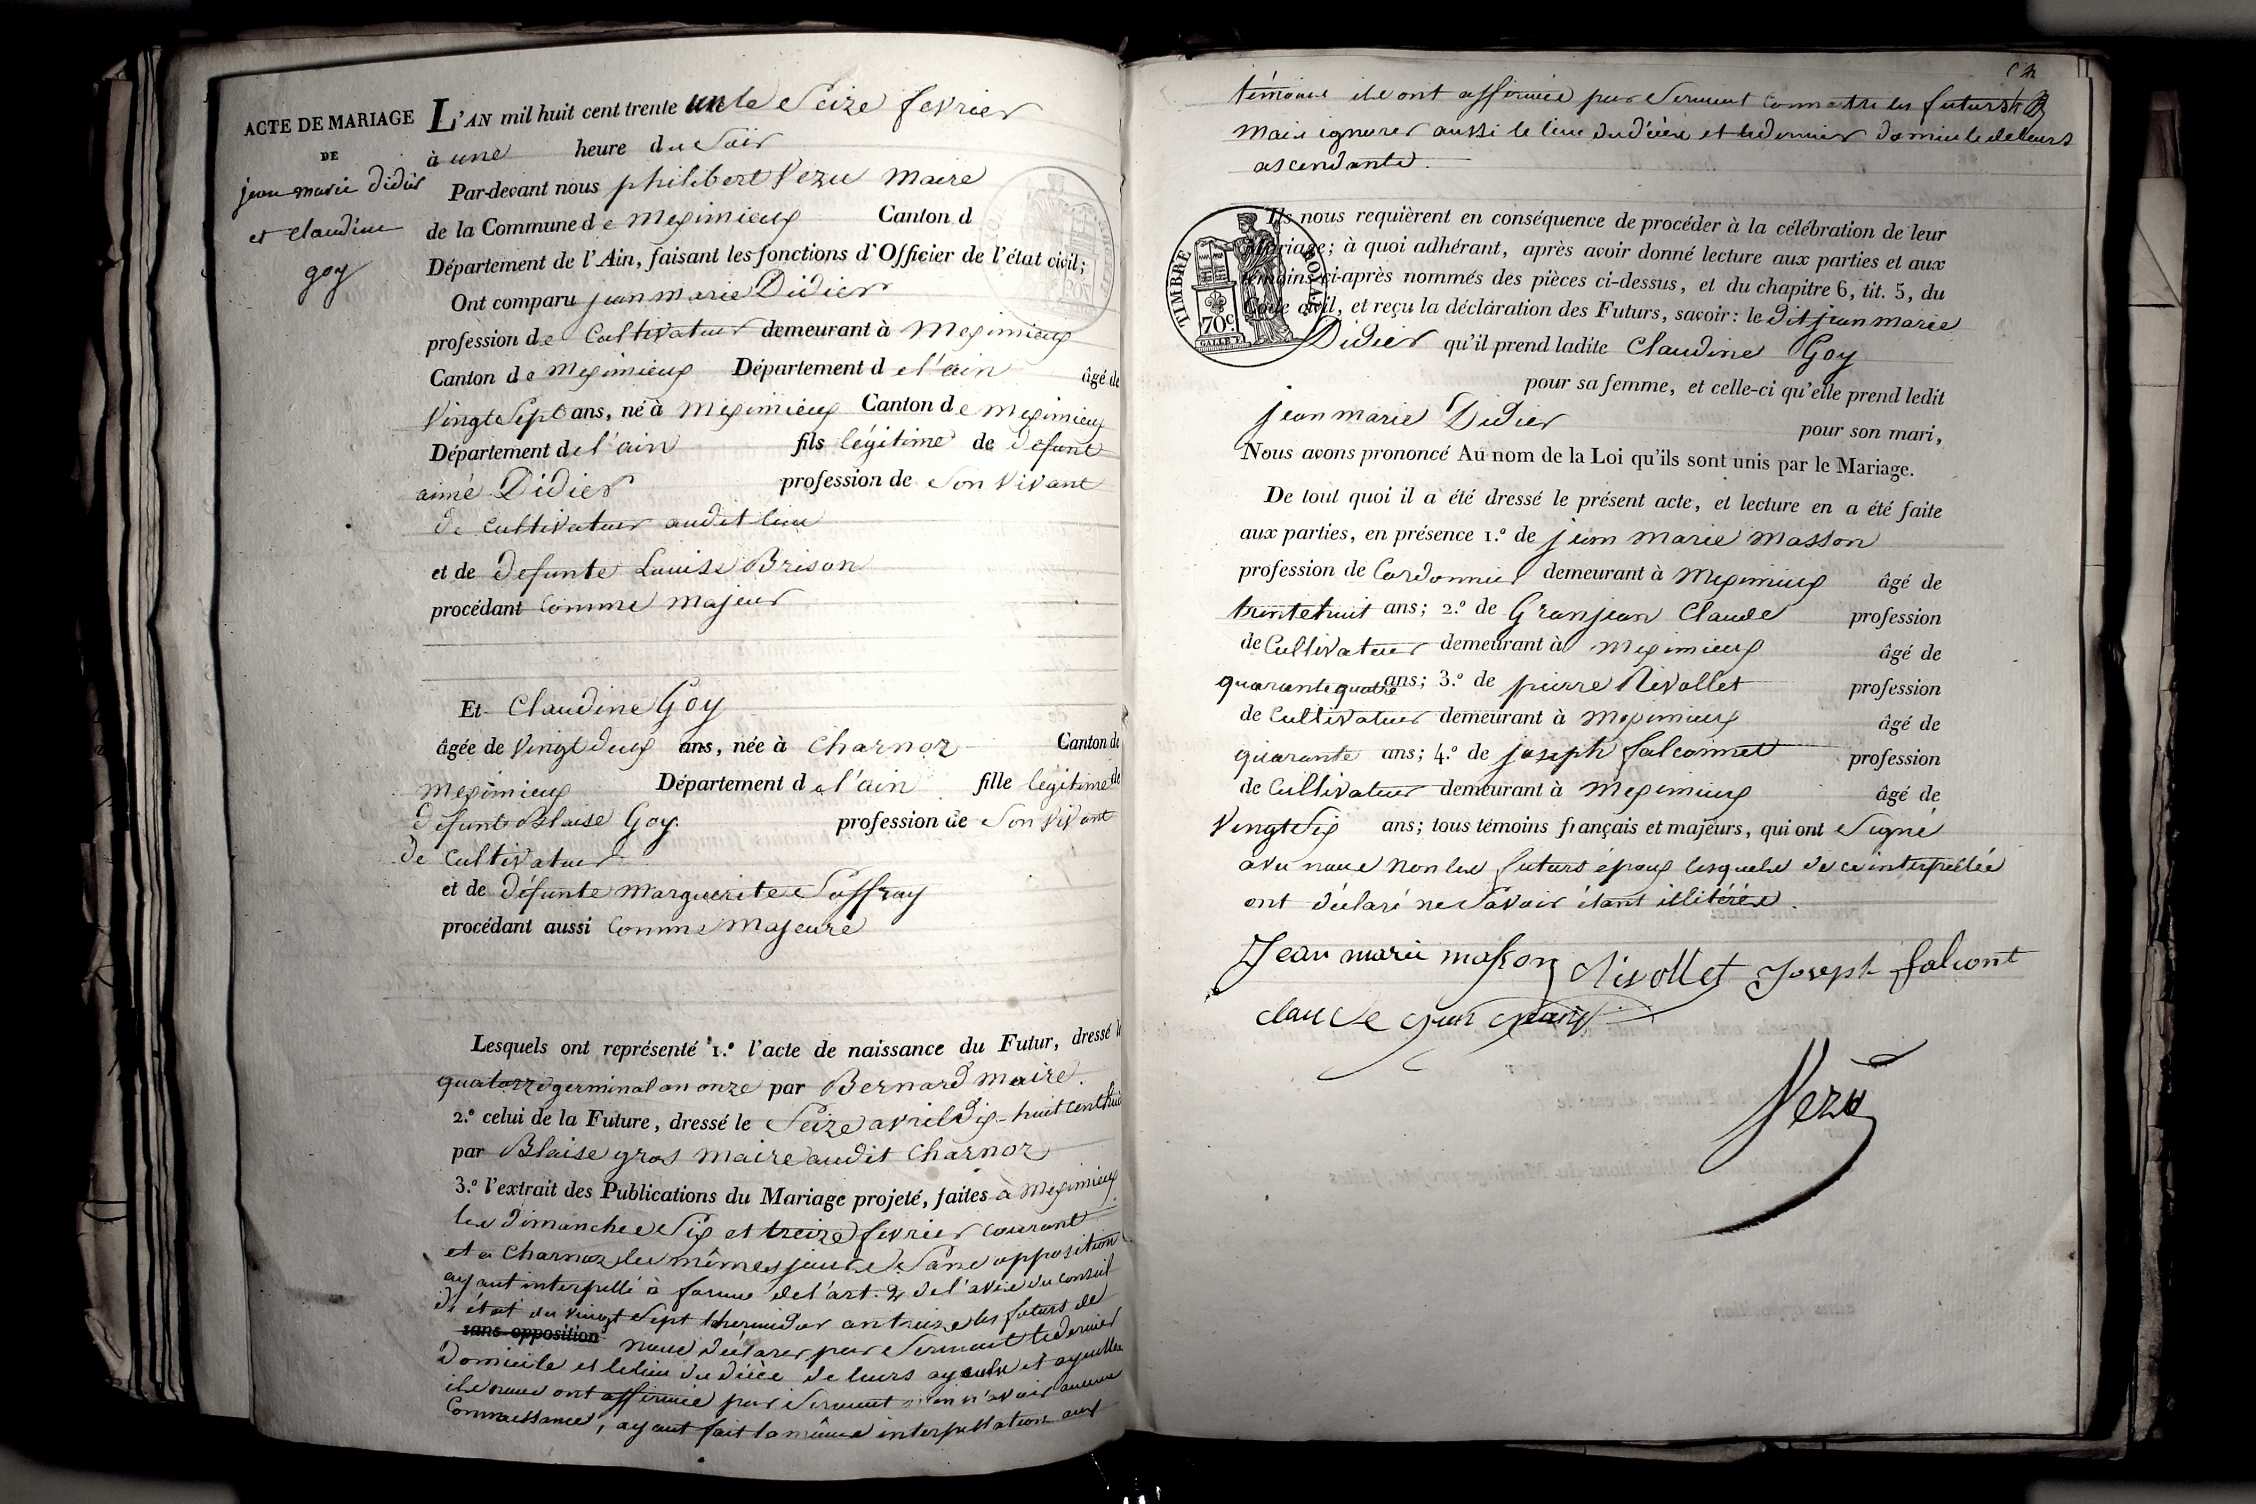 ACTE DE MARIAGE
DE
jean marie didier
et claudine
goy
L'AN mil huit cent trente un le Seize fevrier
à une heure du Soir
Par-devant nous philibert Vezu Maire
de la Commune de Meximieux Canton d
Département de l'Ain, faisant les fonctions d'Officier de l'état civil;
Ont comparu jean marie Didier
profession de Cultivateur demeurant à Meximieux
Canton de Meximieux Département de l'ain âgé de
Vingt Sept ans, né à Meximieux Canton de Meximieux
Département de l'ain fils légitime de défunt
aimé Didier profession de Son Vivant
de Cultivateur audit lieu
et de défunte Louise Brison
procédant Comme Majeur
Et Claudine Goy
âgée de Vingt deux ans, née à Charnoz Canton de
Meximieux Département de l'ain fille légitime de
défunt Blaise Goy profession de Son Vivant
de Cultivateur
et de défunte Marguerite Soffray
procédant aussi Comme Majeure
Lesquels ont représenté 1.º l'acte de naissance du Futur, dressé le
quatorze germinal an onze par Bernard Maire.
2.º celui de la Future, dressé le Seize avril dix-huit cent huit
par Blaise gros Maire audit Charnoz
3.º l'extrait des Publications du Mariage projeté, faites à Meximieux
les dimanches Six et treize fevrier courant
et à Charnoz les mêmes jours Sans opposition
ayant interpellé à forme de l'art. 2 de l'avis du Conseil
d'état du vingt Sept thermidor an treize les futurs de
sans opposition nous déclarer par Serment le dernier
Domicile et le lieu du décès de leurs ayeuls et ayeulles
ils nous ont affirmé par Serment n'en n'avoir aucune
Connaissance, ayant fait la même interpellation aux
témoins ils ont affirmé par Serment Connaitre les futurs
Mais ignorer aussi le lieu du décès et le dernier domicile de leurs
ascendants.
TIMBRE ROYAL
70c.
Ils nous requièrent en conséquence de procéder à la célébration de leur
Mariage; à quoi adhérant, après avoir donné lecture aux parties et aux
témoins ci-après nommés des pièces ci-dessus, et du chapitre 6, tit. 5, du
Code civil, et reçu la déclaration des Futurs, savoir: le dit jean marie
Didier qu'il prend ladite Claudine Goy
pour sa femme, et celle-ci qu'elle prend ledit
jean marie Didier pour son mari,
Nous avons prononcé Au nom de la Loi qu'ils sont unis par le Mariage.
De tout quoi il a été dressé le présent acte, et lecture en a été faite
aux parties, en présence 1.º de jean marie Masson
profession de Cordonnier demeurant à Meximieux âgé de
trente huit ans; 2.º de Granjean Claude profession
de Cultivateur demeurant à Meximieux âgé de
quarante quatre ans; 3.º de pierre Nivollet profession
de Cultivateur demeurant à Meximieux âgé de
quarante ans; 4.º de joseph falconnet profession
de Cultivateur demeurant à Meximieux âgé de
Vingt Six ans; tous témoins français et majeurs, qui ont Signé
avec nous non les futurs époux lesquels de ce interpellés
ont déclaré ne Savoir étant illitérés.
Jean marie masson Nivollet Joseph falcont
claude gran
Vezu